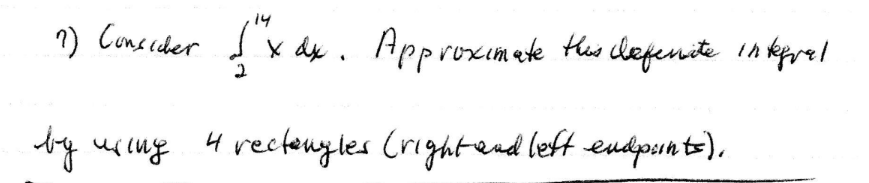 7) Consider ∫₂¹⁴ x dx. Approximate this definite integral
by using 4 rectangles (right and left endpoints).